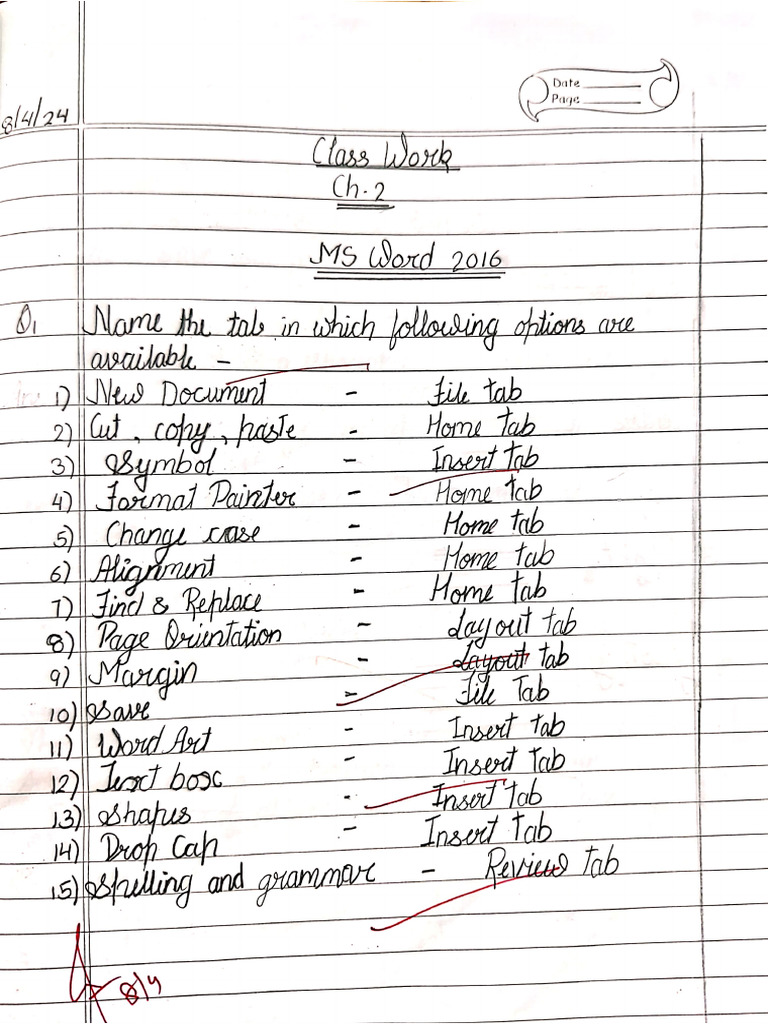 Date
Page
8/4/24
Class Work
Ch. 2
MS Word 2016
Q1 Name the tab in which following options are
available -
1) New Document - File tab
2) Cut, copy, paste - Home tab
3) Symbol - Insert tab
4) Format Painter - Home tab
5) Change case - Home tab
6) Alignment - Home tab
7) Find & Replace - Home tab
8) Page Orientation - Layout tab
9) Margin - Layout tab
10) Save - File Tab
11) Word Art - Insert tab
12) Text box - Insert tab
13) Shapes - Insert tab
14) Drop Cap - Insert tab
15) Spelling and grammar - Review tab
8/4